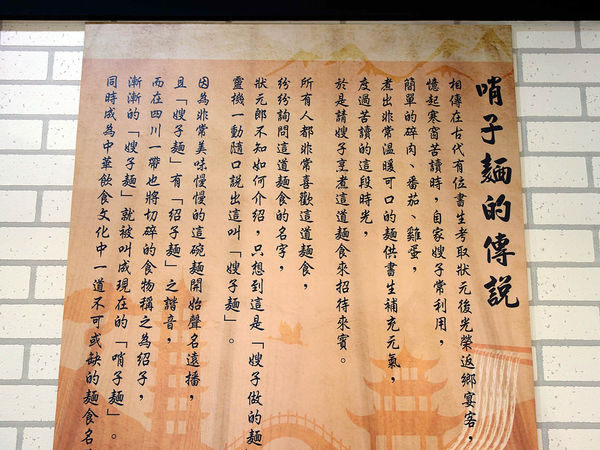 哨子麵的傳說
相傳在古代有位書生考取狀元後光榮返鄉宴客，
憶起寒窗苦讀時，自家嫂子常利用，
簡單的碎肉、番茄、雞蛋，
煮出非常溫暖可口的麵供書生補充元氣，
度過苦讀的這段時光，
於是請嫂子烹煮這道麵食來招待來賓。
所有人都非常喜歡這道麵食，
紛紛詢問這道麵食的名字，
狀元郎不知如何介紹，只想到這是「嫂子做的麵
靈機一動隨口說出這叫「嫂子麵」。
因為非常美味慢慢的這碗麵開始聲名遠播，
且「嫂子麵」有「紹子麵」之諧音，
而在四川一帶也將切碎的食物稱之為紹子，
漸漸的「嫂子麵」就被叫成現在的「哨子麵」。
同時成為中華飲食文化中一道不可或缺的麵食名